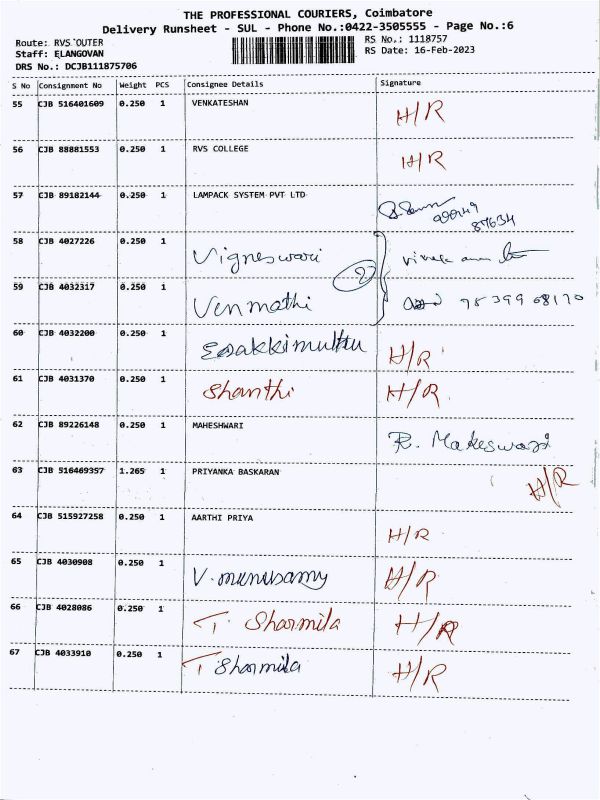 THE PROFESSIONAL COURIERS, Coimbatore
Delivery Runsheet - SUL - Phone No.:0422-3505555 - Page No.:6
Route: RVS OUTER RS No.: 1118757
Staff: ELANGOVAN RS Date: 16-Feb-2023
DRS No.: DCJB111875706
S No Consignment No Weight PCS Consignee Details Signature
55 CJB 516401609 0.250 1 VENKATESHAN H/R
56 CJB 88881553 0.250 1 RVS COLLEGE H/R
57 CJB 89182144 0.250 1 LAMPACK SYSTEM PVT LTD
87634
58 CJB 4027226 0.250 1 Vigneswari
2
59 CJB 4032317 0.250 1 Venmathi
60 CJB 4032200 0.250 1 Esakkimuthu H/R
61 CJB 4031370 0.250 1 Shanthi H/R
62 CJB 89226148 0.250 1 MAHESHWARI R. Makeswari
63 CJB 516469357 1.265 1 PRIYANKA BASKARAN H/R
64 CJB 515927258 0.250 1 AARTHI PRIYA H/R
65 CJB 4030908 0.250 1 V. munusamy H/R
66 CJB 4028086 0.250 1 T. Sharmila H/R
67 CJB 4033910 0.250 1 T Sharmila H/R